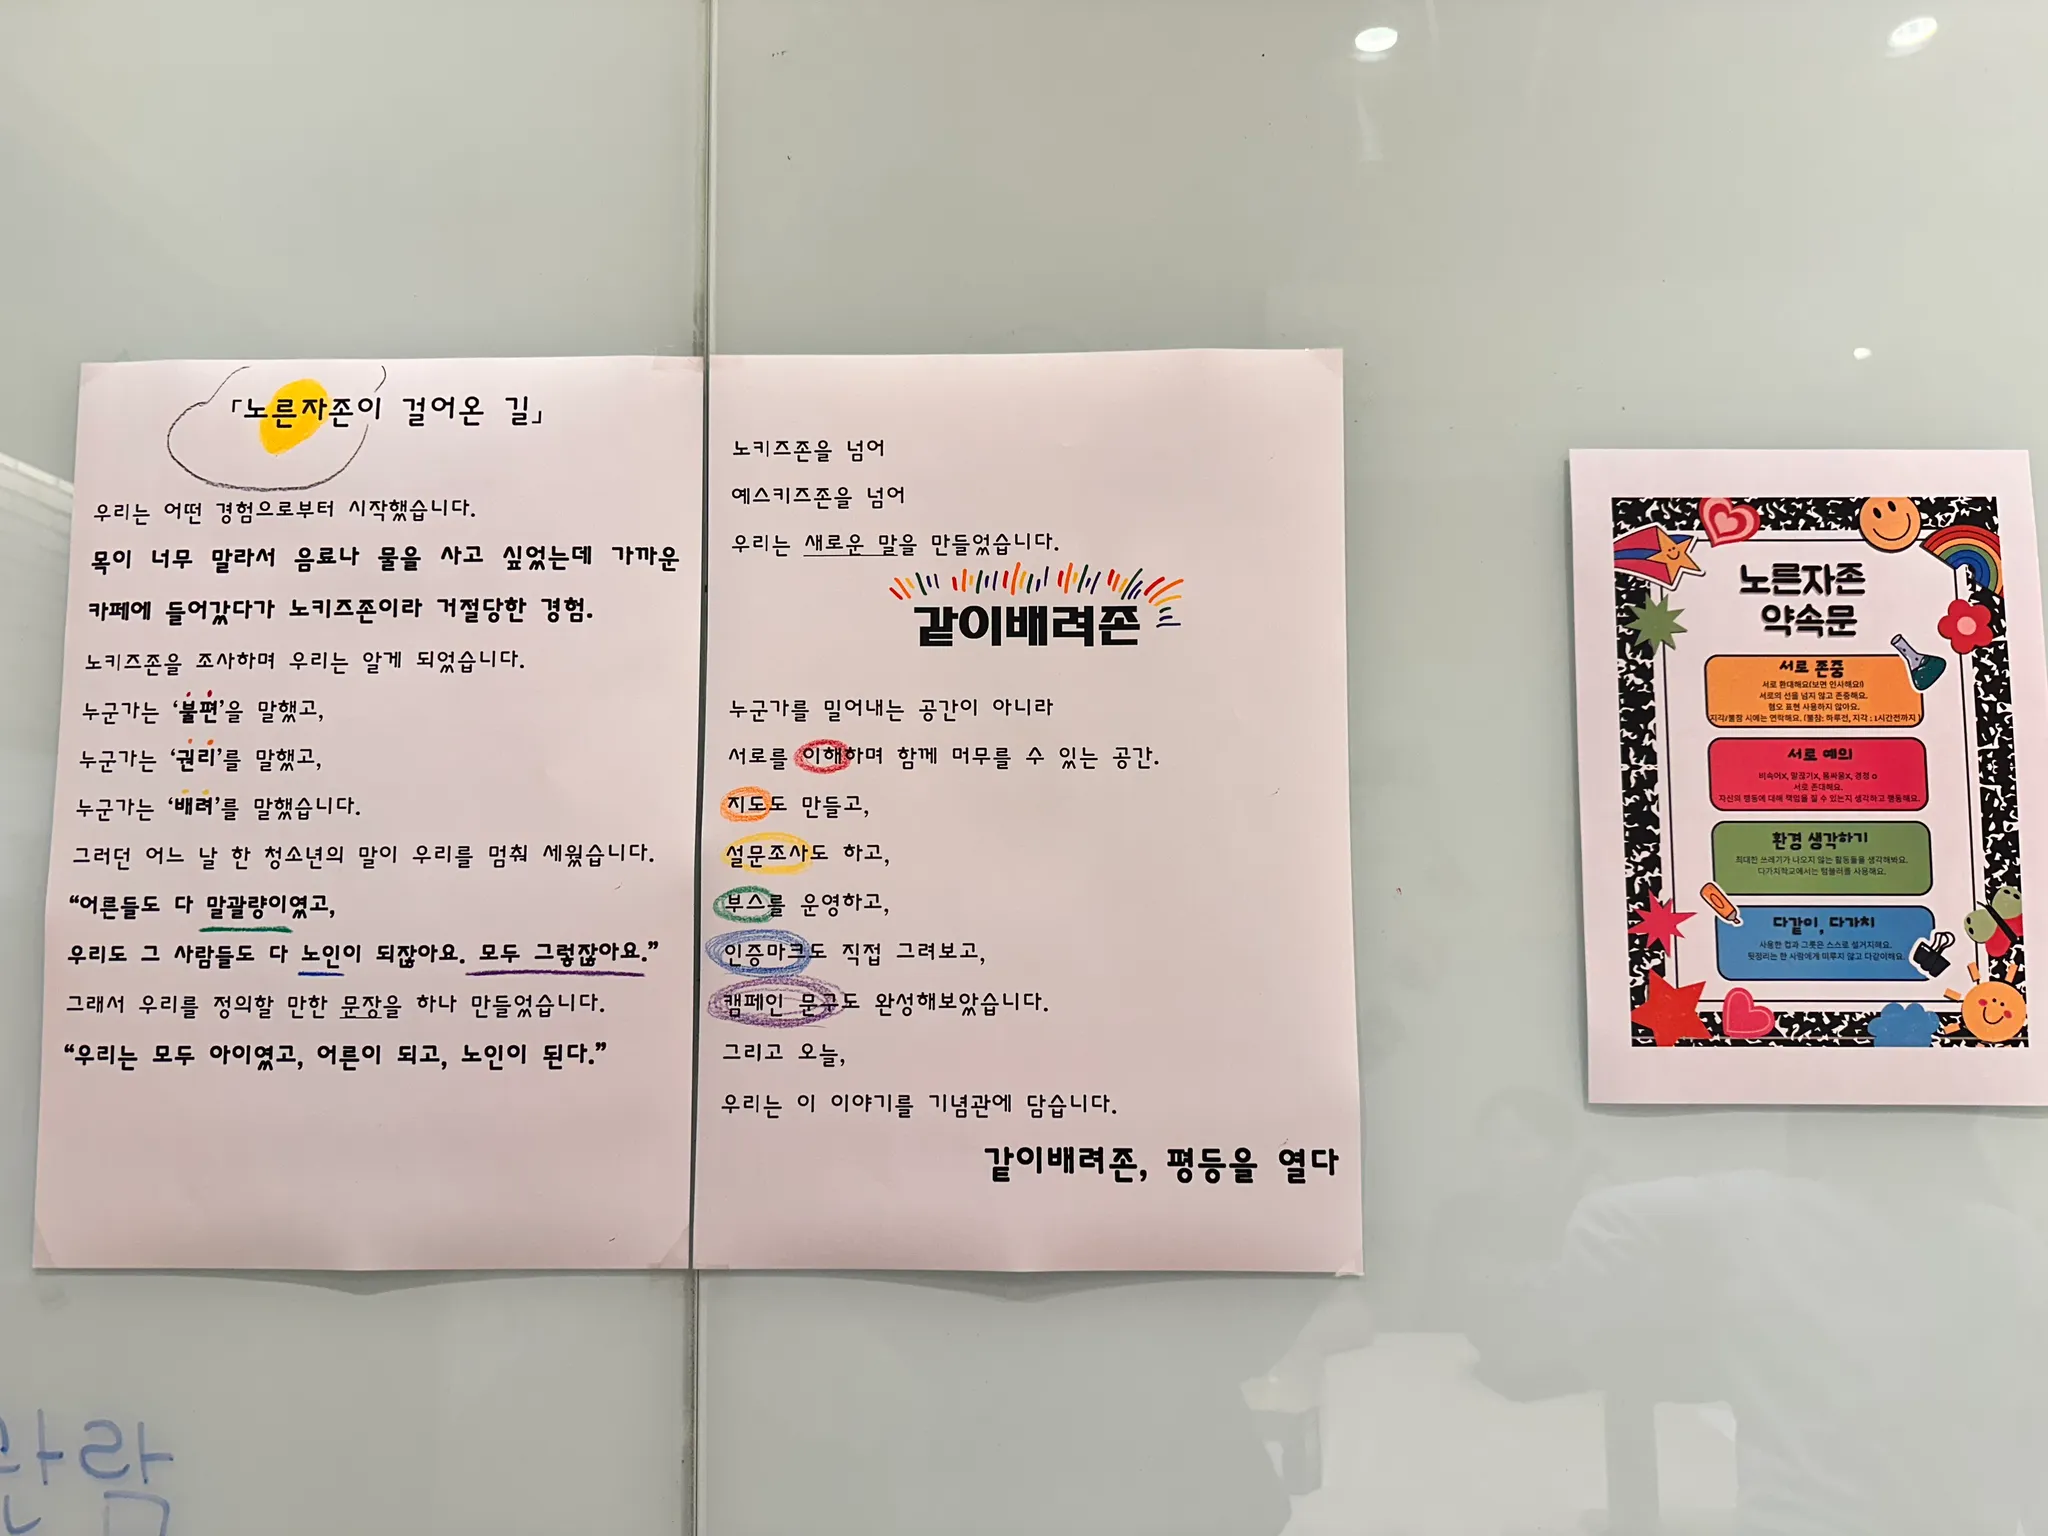 「노른자존이 걸어온 길」
우리는 어떤 경험으로부터 시작했습니다.
목이 너무 말라서 음료나 물을 사고 싶었는데 가까운
카페에 들어갔다가 노키즈존이라 거절당한 경험.
노키즈존을 조사하며 우리는 알게 되었습니다.
누군가는 ‘불편’을 말했고,
누군가는 ‘권리’를 말했고,
누군가는 ‘배려’를 말했습니다.
그러던 어느 날 한 청소년의 말이 우리를 멈춰 세웠습니다.
“어른들도 다 말괄량이였고,
우리도 그 사람들도 다 노인이 되잖아요. 모두 그렇잖아요.”
그래서 우리를 정의할 만한 문장을 하나 만들었습니다.
“우리는 모두 아이였고, 어른이 되고, 노인이 된다.”
노키즈존을 넘어
예스키즈존을 넘어
우리는 새로운 말을 만들었습니다.
같이배려존
누군가를 밀어내는 공간이 아니라
서로를 이해하며 함께 머무를 수 있는 공간.
지도도 만들고,
설문조사도 하고,
부스를 운영하고,
인증마크도 직접 그려보고,
캠페인 문구도 완성해보았습니다.
그리고 오늘,
우리는 이 이야기를 기념관에 담습니다.
같이배려존, 평등을 열다
노른자존
약속문
서로 존중
서로 환대해요(보면 인사해요!)
서로의 선을 넘지 않고 존중해요.
혐오 표현 사용하지 않아요.
지각/불참 시에는 연락해요. (불참: 하루전, 지각 : 1시간전까지)
서로 예의
비속어X, 말끊기X, 몸싸움X, 경청 o
서로 존대해요.
자신의 행동에 대해 책임을 질 수 있는지 생각하고 행동해요.
환경 생각하기
최대한 쓰레기가 나오지 않는 활동들을 생각해봐요.
다가치학교에서는 텀블러를 사용해요.
다같이, 다가치
사용한 컵과 그릇은 스스로 설거지해요.
뒷정리는 한 사람에게 미루지 않고 다같이해요.